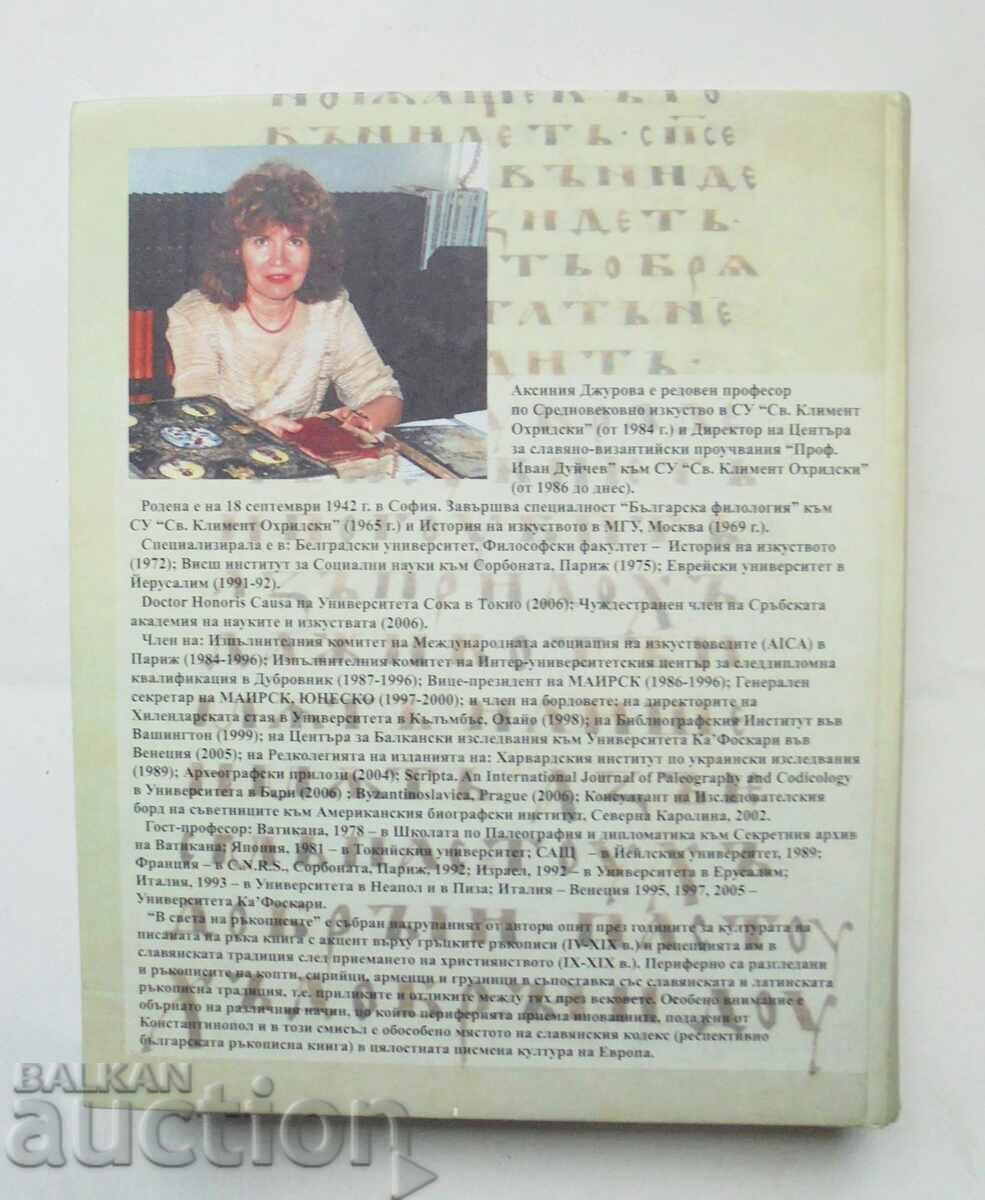 Аксиния Джурова е редовен професор
по Средновековно изкуство в СУ “Св. Климент
Охридски” (от 1984 г.) и Директор на Центъра
за славяно-византийски проучвания “Проф.
Иван Дуйчев” към СУ “Св. Климент Охридски”
(от 1986 до днес).
Родена е на 18 септември 1942 г. в София. Завършва специалност “Българска филология” към
СУ “Св. Климент Охридски” (1965 г.) и История на изкуството в МГУ, Москва (1969 г.).
Специализирала е в: Белградски университет, Философски факултет – История на изкуството
(1972); Висш институт за Социални науки към Сорбоната, Париж (1975); Еврейски университет в
Йерусалим (1991-92).
Doctor Honoris Causa на Университета Сока в Токио (2006); Чуждестранен член на Сръбската
академия на науките и изкуствата (2006).
Член на: Изпълнителния комитет на Международната асоциация на изкуствоведите (AICA) в
Париж (1984-1996); Изпълнителния комитет на Интер-университетския център за следдипломна
квалификация в Дубровник (1987-1996); Вице-президент на МАИРСК (1986-1996); Генерален
секретар на МАИРСК, ЮНЕСКО (1997-2000); и член на бордовете: на директорите на
Хилендарската стая в Университета в Кълъмбъс, Охайо (1998); на Библиографския Институт във
Вашингтон (1999); на Центъра за Балкански изследвания към Университета Ка’Фоскари във
Венеция (2005); на Редколегията на изданията на: Харвардския институт по украински изследвания
(1989); Археографски прилози (2004); Scripta. An International Journal of Paleography and Codicology
в Университета в Бари (2006) ; Byzantinoslavica, Prague (2006); Консултант на Изследователския
борд на съветниците към Американския биографски институт, Северна Каролина, 2002.
Гост-професор: Ватикана, 1978 – в Школата по Палеография и дипломатика към Секретния архив
на Ватикана; Япония, 1981 – в Токийския университет; САЩ – в Йейлския университет, 1989;
Франция – в C.N.R.S., Сорбоната, Париж, 1992; Израел, 1992 – в Университета в Ерусалим;
Италия, 1993 – в Университета в Неапол и в Пиза; Италия – Венеция 1995, 1997, 2005 –
Университета Ка’Фоскари.
“В света на ръкописите” е събран натрупаният от автора опит през годините за културата на
писаната на ръка книга с акцент върху гръцките ръкописи (IV-XIX в.) и рецепцията им в
славянската традиция след приемането на християнството (IX-XIX в.). Периферно са разгледани
и ръкописите на копти, сирийци, арменци и грузинци в съпоставка със славянската и латинската
ръкописна традиция, т.е. приликите и отликите между тях през вековете. Особено внимание е
обърнато на различния начин, по който периферията приема иновациите, подадени от
Константинопол и в този смисъл е обособено мястото на славянския кодекс (респективно
българската ръкописна книга) в цялостната писмена култура на Европа.
BALKAN
auction